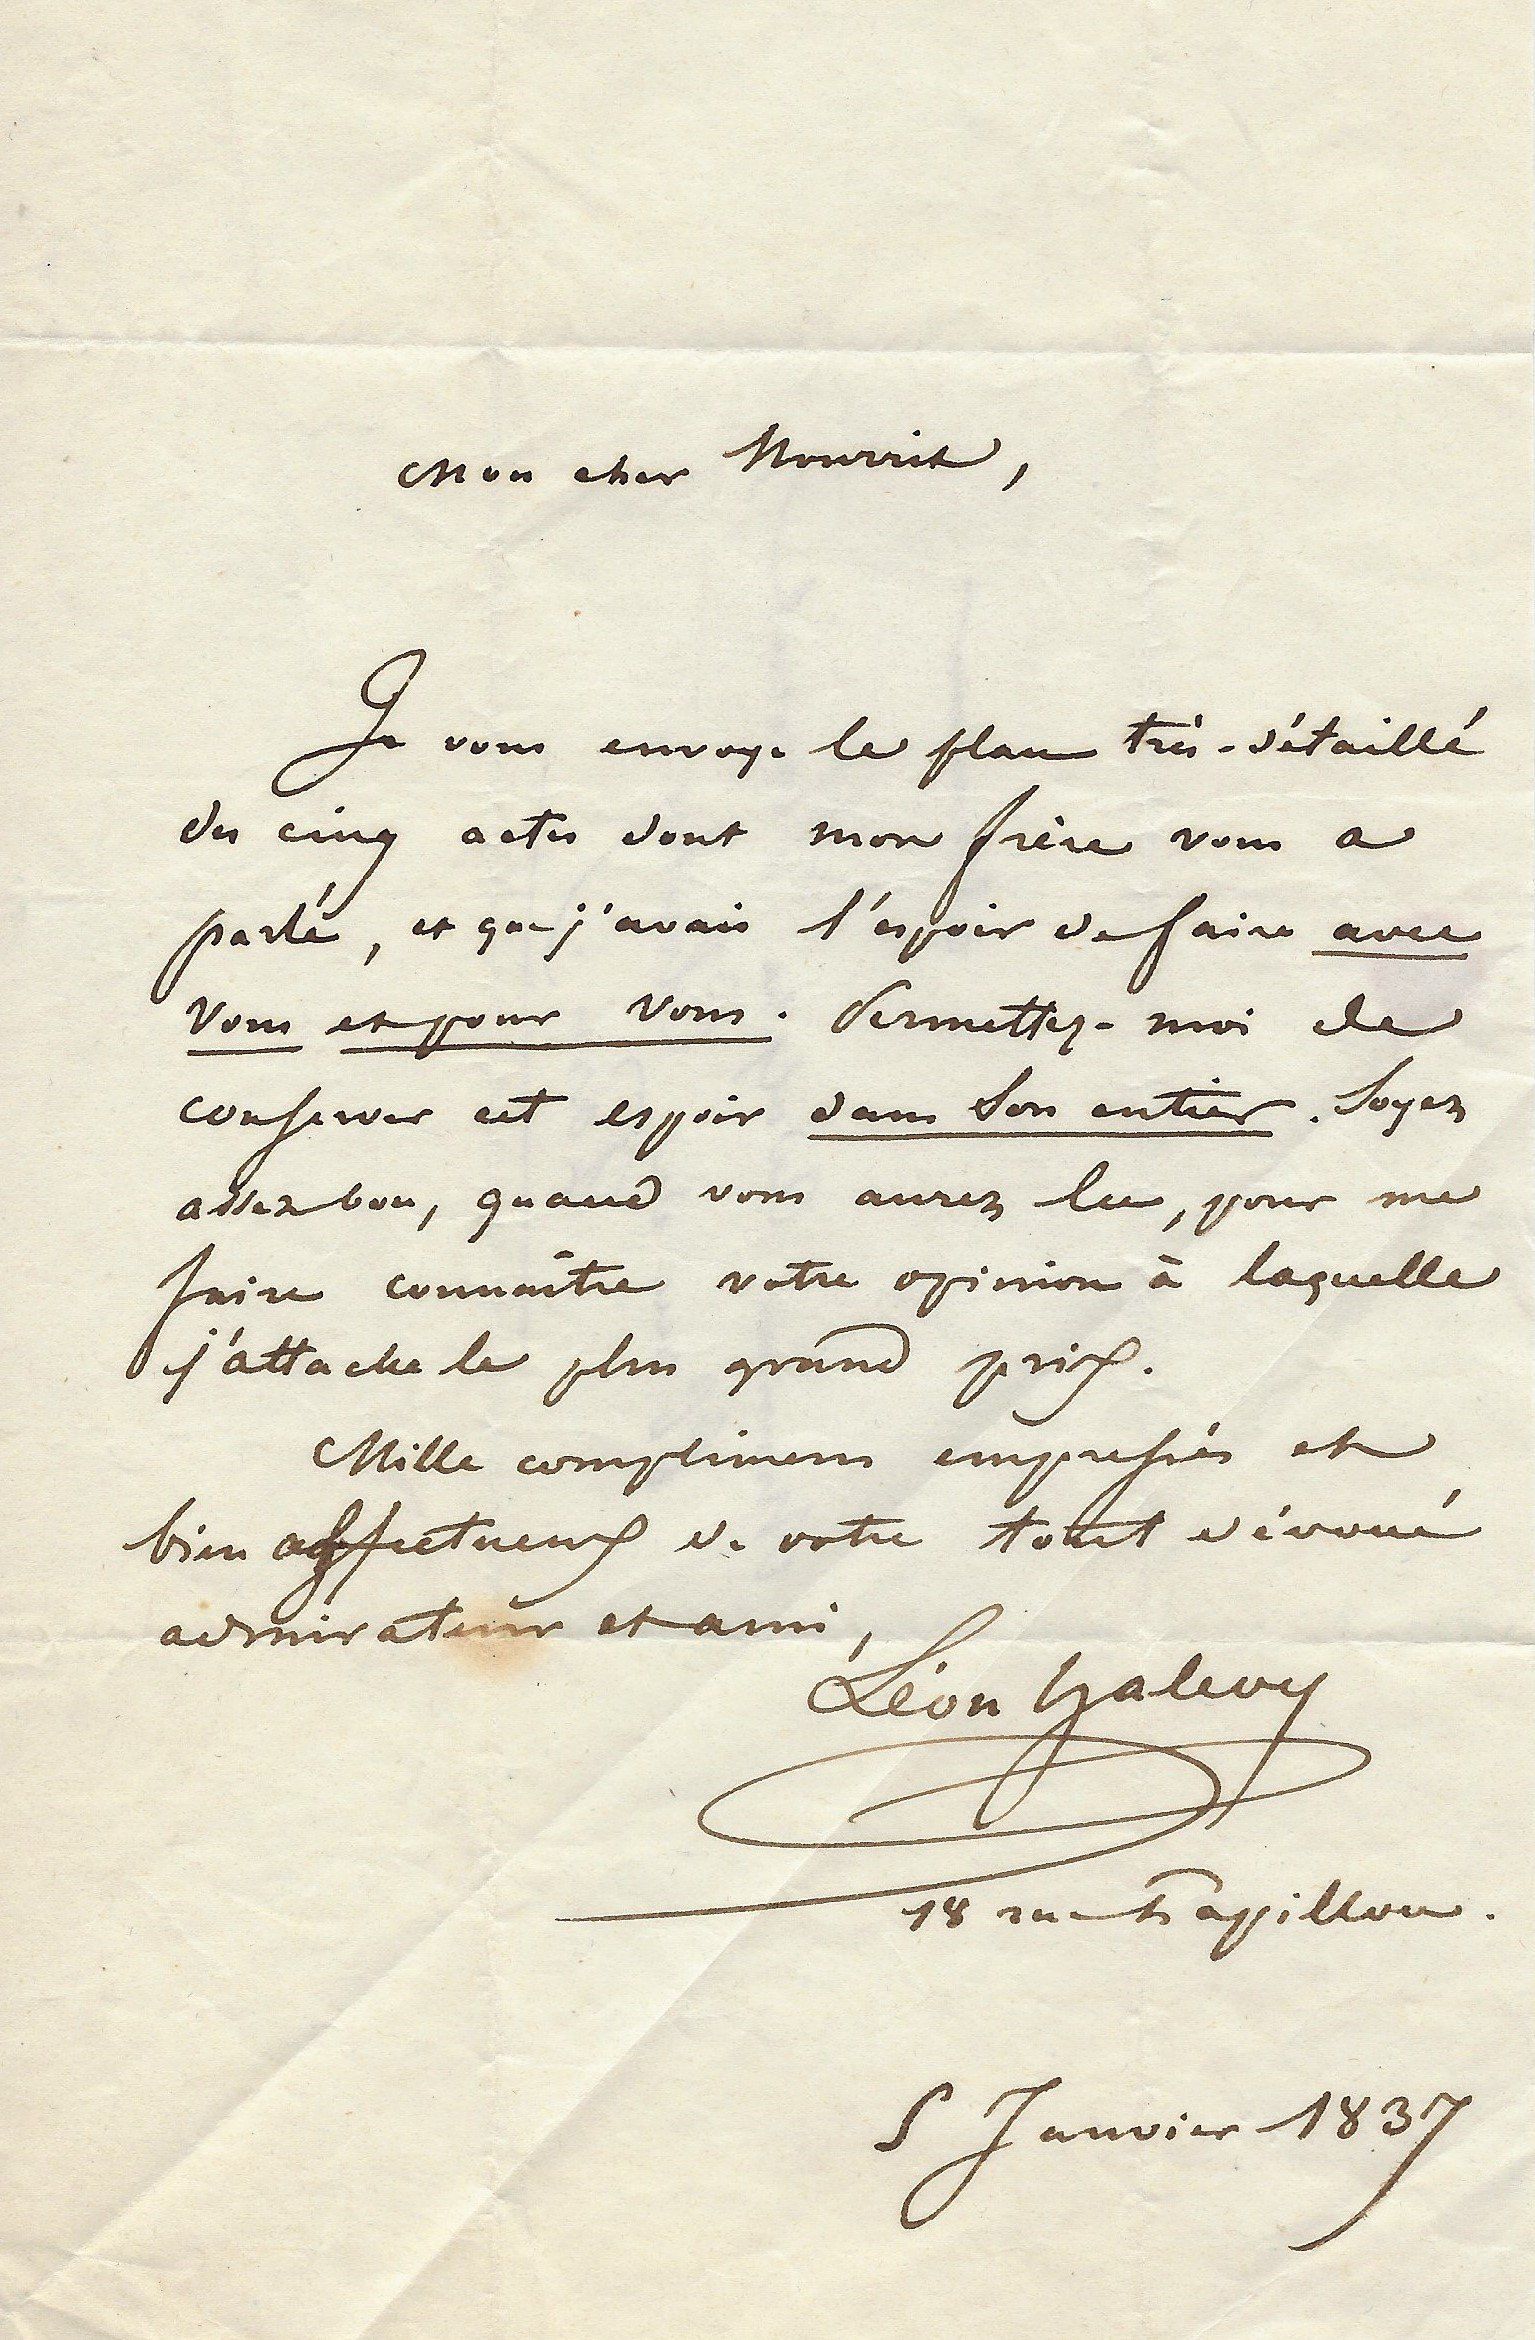 Mon cher Nourrit,
Je vous envoye le plan très-détaillé
des cinq actes dont mon frère vous a
parlé, et que j'avais l'espoir de faire avec
vous et pour vous. Permettez-moi de
conserver cet espoir dans son entier. Soyez
assez bon, quand vous aurez lu, pour me
faire connaître votre opinion à laquelle
j'attache le plus grand prix.
Mille complimens empressés et
bien affectueux de votre tout dévoué
admirateur et ami,
Léon halevy
18 rue Papillon.
5 Janvier 1837